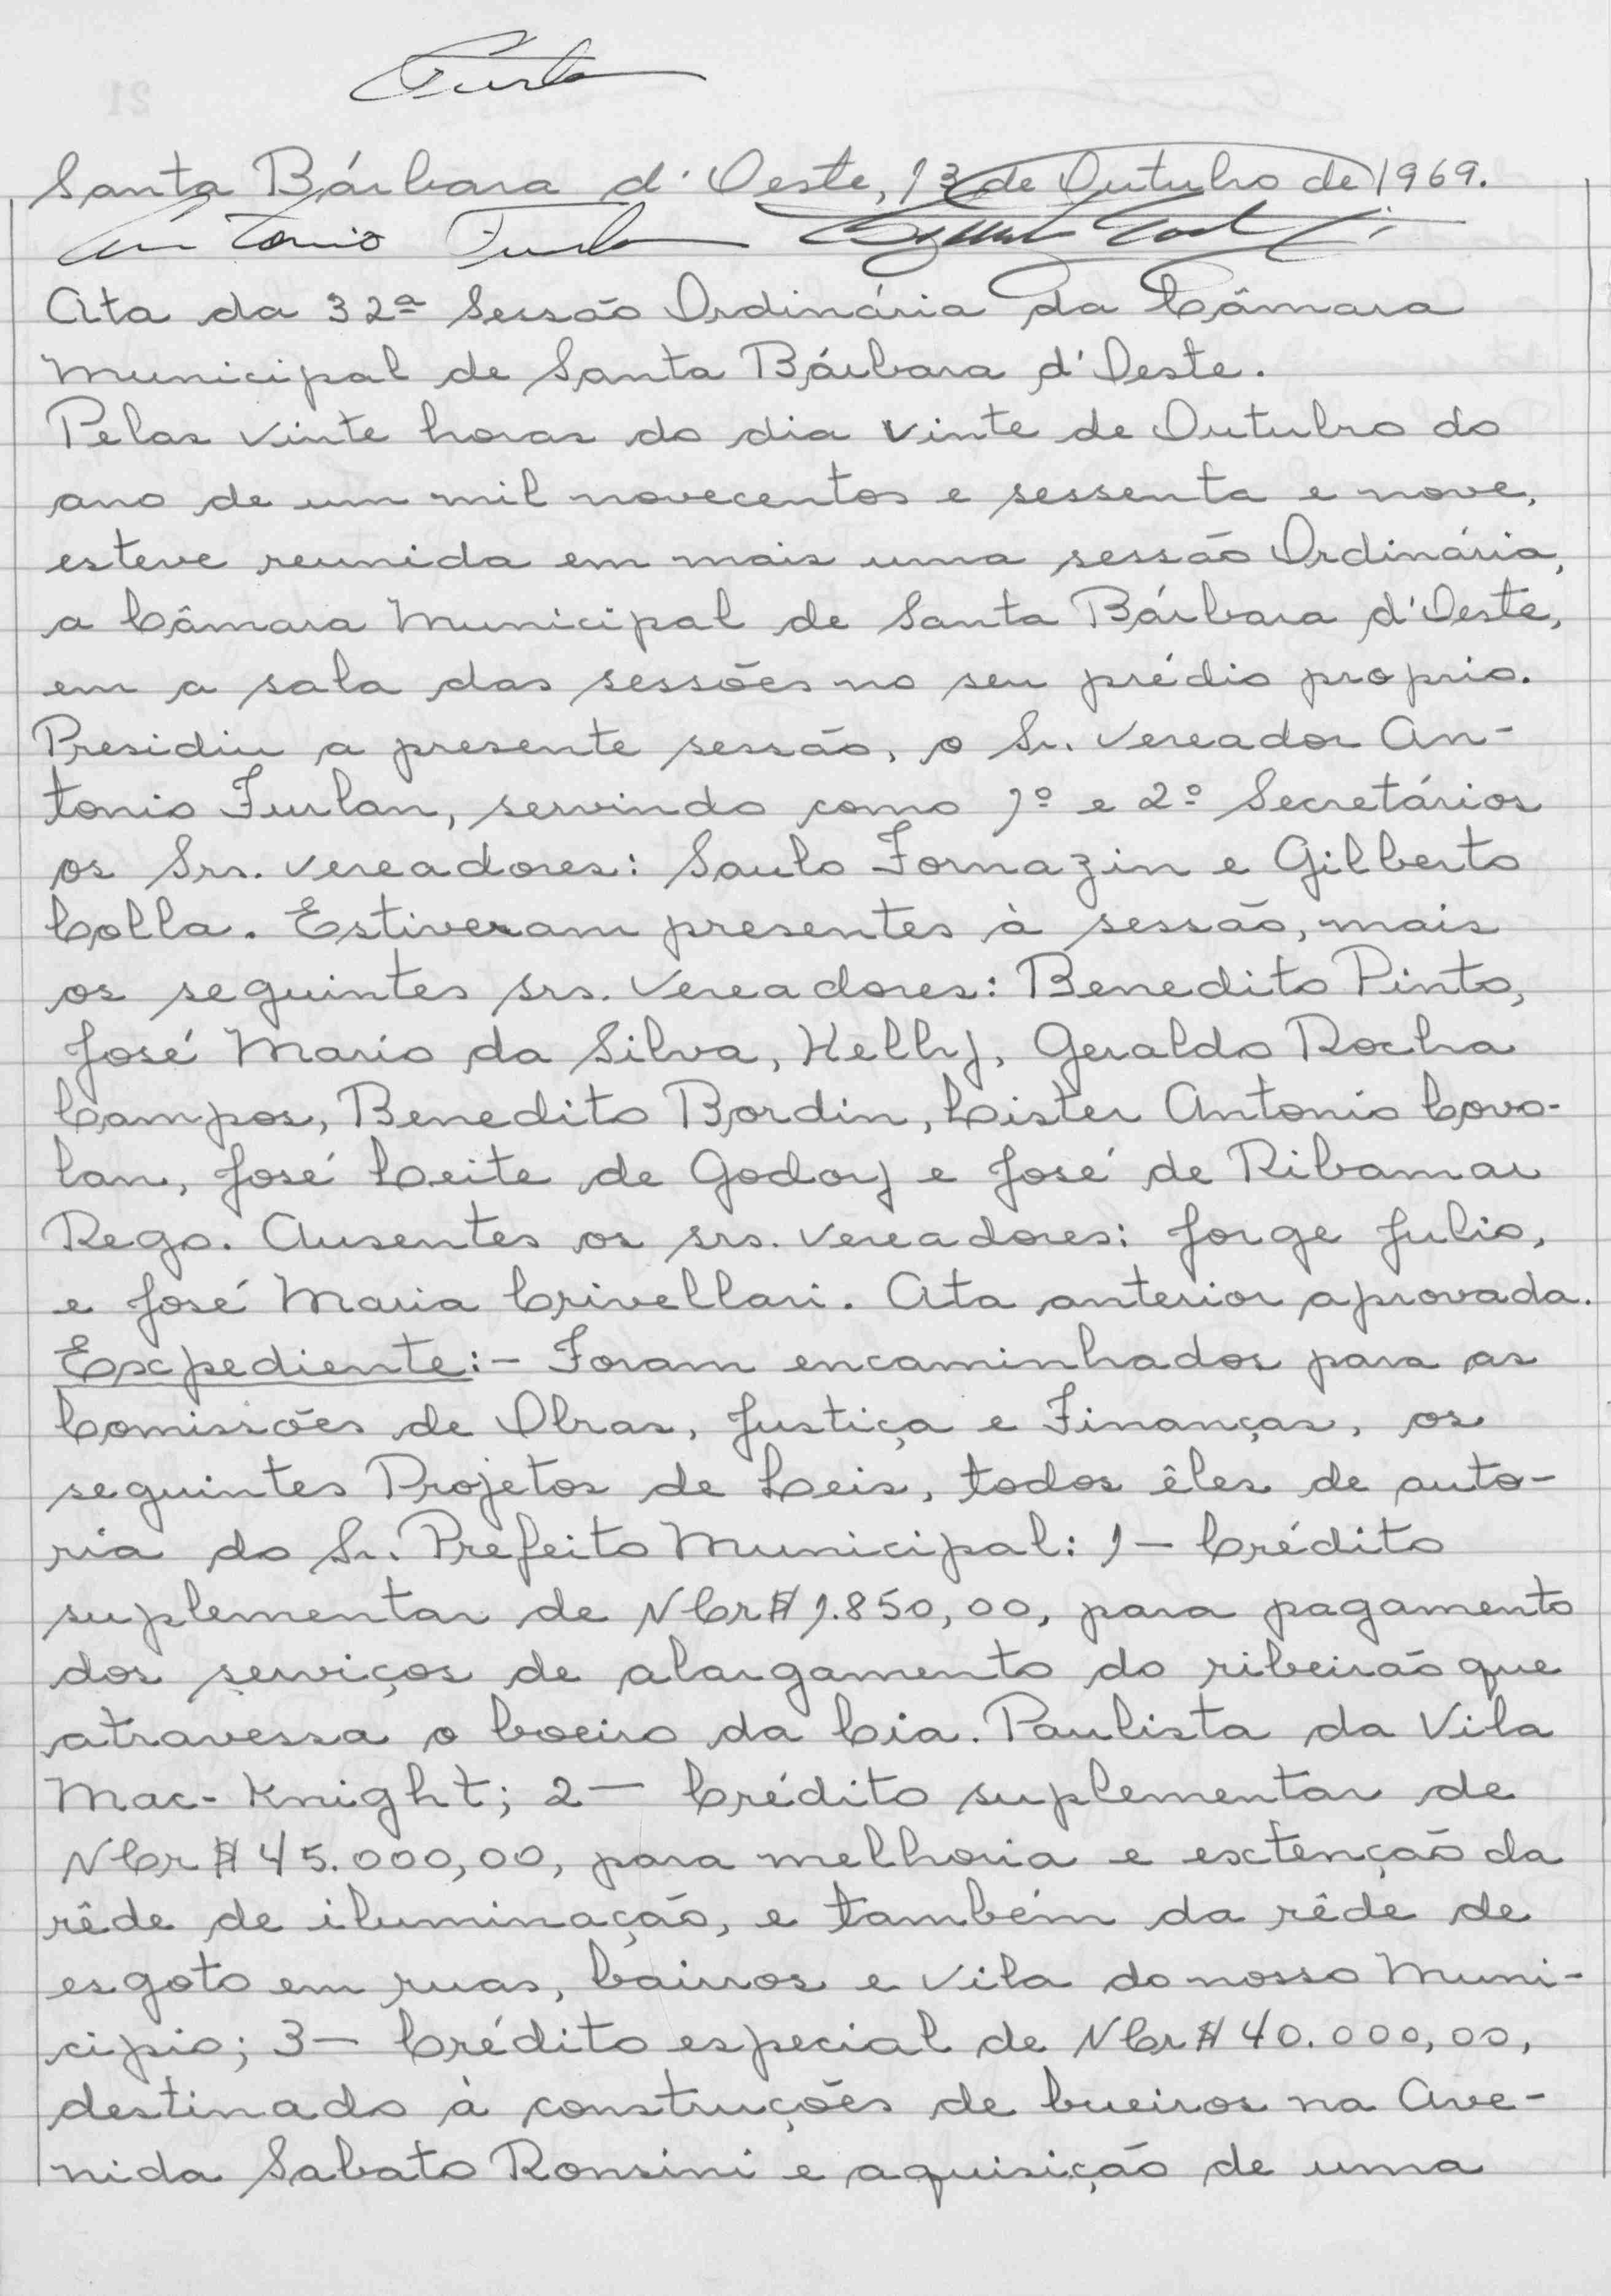 Furlan
Santa Bárbara d'Oeste, 13 de Outubro de 1969.
Antonio Furlan
Ata da 32ª Sessão Ordinária da Câmara
Municipal de Santa Bárbara d'Oeste.
Pelas vinte horas do dia vinte de Outubro do
ano de um mil novecentos e sessenta e nove,
esteve reunida em mais uma sessão Ordinária,
a Câmara Municipal de Santa Bárbara d'Oeste,
em a sala das sessões no seu prédio proprio.
Presidiu a presente sessão, o Sr. Vereador An-
tonio Furlan, servindo como 1º e 2º Secretários
os Srs. Vereadores: Saulo Fornazin e Gilberto
Colla. Estiveram presentes à sessão, mais
os seguintes srs. Vereadores: Benedito Pinto,
José Mario da Silva, Kelly, Geraldo Rocha
Campos, Benedito Bordin, Lister Antonio Covo-
lan, José Leite de Godoy e José de Ribamar
Rego. Ausentes os srs. Vereadores: Jorge Julio,
e José Maria Crivellari. Ata anterior aprovada.
Expediente:- Foram encaminhados para as
Comissões de Obras, Justiça e Finanças, os
seguintes Projetos de Leis, todos êles de auto-
ria do Sr. Prefeito Municipal: 1- Crédito
suplementar de NCr$ 1.850,00, para pagamento
dos serviços de alargamento do ribeirão que
atravessa o boeiro da Cia. Paulista da Vila
Mac-Knight; 2- Crédito suplementar de
NCr$ 45.000,00, para melhoria e extenção da
rêde de iluminação, e também da rêde de
esgoto em ruas, bairros e vila do nosso Muni-
cipio; 3- Crédito especial de NCr$ 40.000,00,
destinado à construções de bueiros na Ave-
nida Sabato Ronsini e aquisição de uma